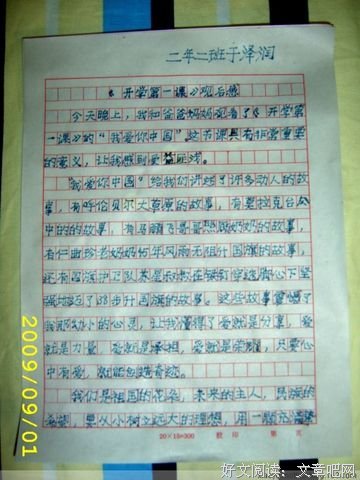 二年二班于泽润
《开学第一课》观后感
今天晚上，我和爸爸妈妈观看了《开学第
一课》的“我爱你中国”这节课具有非常重要
的意义，让我感到受益
“我爱你中国”给我们讲述了许多动人的故
事，有呼伦贝尔大草原的故事，有奥拉克台
中的的故事，有马鹏飞哥哥照顾奶奶的故事，
有仁曲珍老奶奶 年风雨无阻升国旗的故事，
还有 卫队
了38步升国旗的故事。这些故事震憾了
我 小的心灵，让我懂得了爱就是分享，爱
就是力量，爱就是承担，爱就是荣耀，只要心
中有爱，就能创造奇迹。
我们是祖国的花朵，未来的主人，民族的
希望，要从小树立远大的理想，用一颗充满
20×15=300 教印 第 页
2009/09/01
好文阅读：文章吧网